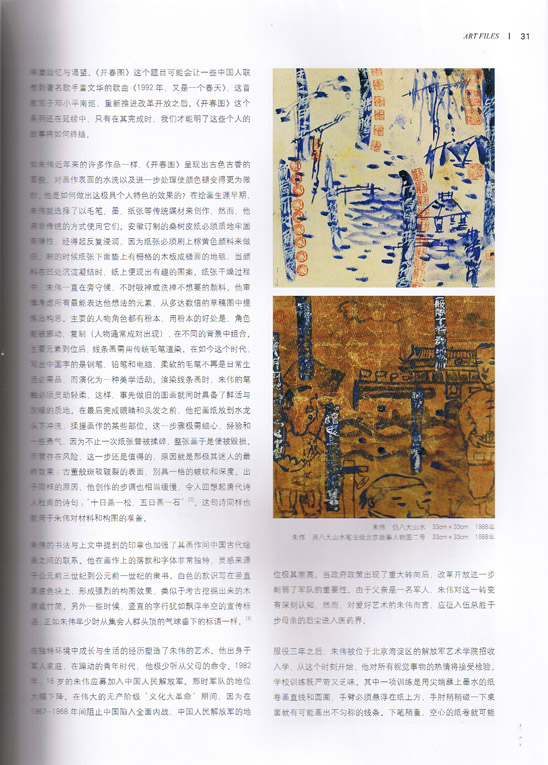 ART FILES | 31
回忆与渴望。《开春图》这个题目可能会让一些中国人联
想到著名歌手董文华的歌曲《1992年,又是一个春天》,这首
歌写于邓小平南巡、重新推进改革开放之后。《开春图》这个
系列还在延续中,只有在其完成时,我们才能明了这些个人的
故事将如何终结。
如朱伟近年来的许多作品一样,《开春图》呈现出古色古香的
面貌,对画作表面的水洗以及进一步处理使颜色褪变得更为微
妙。他是如何做出这极具个人特色的效果的?在绘画生涯早期,
朱伟就选择了以毛笔、墨、纸张等传统媒材来创作,然而,他
用非传统的方式使用它们。安徽订制的桑树皮纸必须质地牢固
有弹性,经得起反复浸润,因为纸张必须刷上棕黄色颜料来做
旧。刷的时候纸张下面垫上有栅格的木板或糙面的地毯,当颜
料在凹处沉淀凝结时,纸上便现出有趣的图案。纸张干燥过程
中,朱伟一直在旁守候,不时吸掉或洗掉不想要的颜料。他审
慎考虑所有最能表达他想法的元素,从多达数倍的草稿图中提
炼出构思。主要的人物角色都有粉本,用粉本的好处是,角色
能被挪动、复制(人物通常成对出现),在不同的背景中组合。
主要元素到位后,线条画需用传统毛笔渲染。在如今这个时代,
写出中国字的是钢笔、铅笔和电脑,柔软的毛笔不再是日常生
活必需品,而演化为一种美学活动。渲染线条画时,朱伟的笔
触必须灵动轻柔,这样,事先做旧的图画就同时具备了鲜活与
灰暗的质地。在最后完成眼睛和头发之前,他把画纸放到水龙
头下冲洗,揉搓画作的某些部位。这一步骤极需细心、经验和
一些勇气,因为不止一次纸张曾被揉碎,整张画于是便被毁损。
尽管存在风险,这一步还是值得的,原因就是那极其迷人的最
终效果:古董般斑驳皲裂的表面,别具一格的皱纹和深度。出
于同样的原因,他创作的步调也相当缓慢,令人回想起唐代诗
人杜甫的诗句:“十日画一松,五日画一石”[2]。这句诗同样也
能用于朱伟对材料和构图的准备。
朱伟的书法与上文中提到的印章也加强了其画作同中国古代绘
画之间的联系。他在画作上的落款和字体非常独特,灵感来源
于公元前三世纪到公元前一世纪的隶书。白色的款识写在竖直
黑底色块上,形成强烈的构图效果,类似于考古挖掘出来的木
牍或竹简。另外一些时候,竖直的字行犹如飘浮半空的宣传标
语,正如朱伟年少时从集会人群头顶的气球垂下的标语一样。[3]
在独特环境中成长与生活的经历塑造了朱伟的艺术。他出身于
军人家庭,在躁动的青年时代,他极少听从父母的命令。1982
年,16岁的朱伟应募加入中国人民解放军。那时军队的地位
大幅下降。在伟大的无产阶级“文化大革命”期间,因为在
1967-1968年间阻止中国陷入全面内战,中国人民解放军的地
朱伟 仿八大山水 33cm×33cm 1988年
朱伟 用八大山水笔法绘北京故事人物图二号 33cm×33cm 1988年
位极其崇高。当政府政策出现了重大转向后,改革开放进一步
削弱了军队的重要性。由于父亲是一名军人,朱伟对这一转变
有深刻认知。然而,对爱好艺术的朱伟而言,应征入伍总胜于
步母亲的后尘进入医药界。
服役三年之后,朱伟被位于北京海淀区的解放军艺术学院招收
入学,从这个时刻开始,他对所有视觉事物的热情将接受检验。
学校训练既严苛又乏味。其中一项训练是用尖端蘸上墨水的纸
卷画直线和圆圈,手臂必须悬浮在纸上方,手肘稍稍碰一下桌
面就有可能画出不匀称的线条。下笔稍重,空心的纸卷就可能